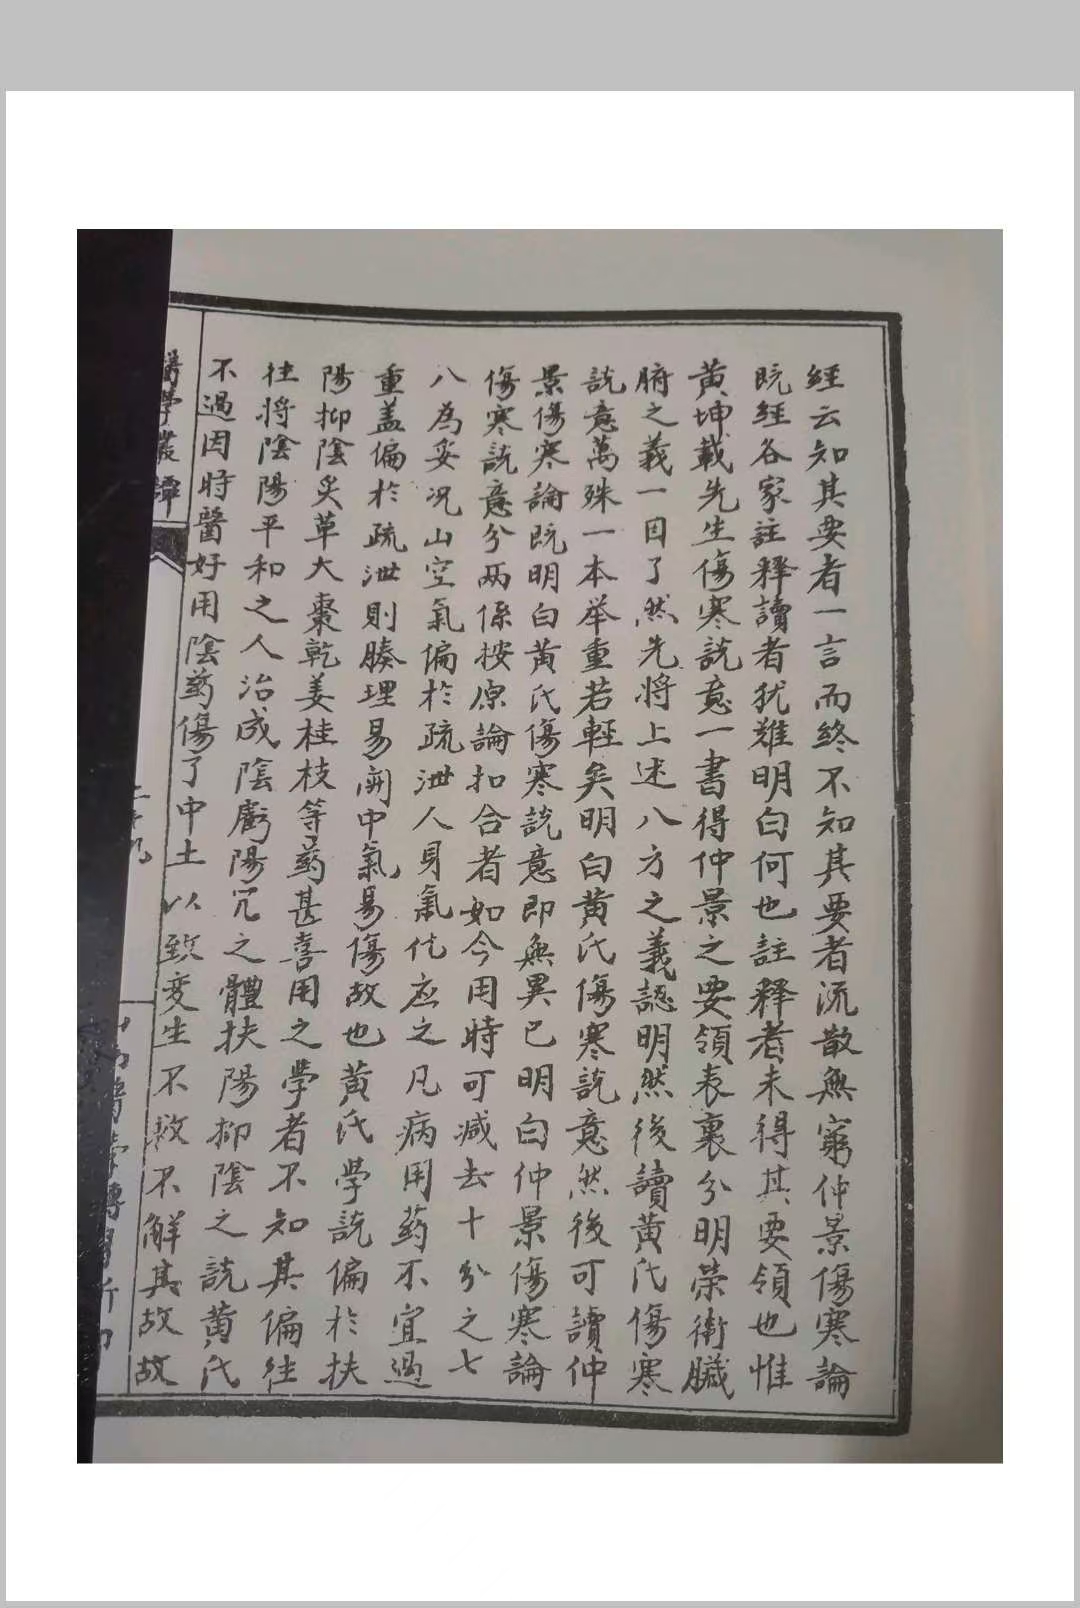 經云知其要者一言而終不知其要者流散無窮仲景傷寒論
既經各家註釋讀者犹難明白何也註釋者未得其要領也惟
黃坤載先生傷寒説意一書得仲景之要領表裏分明榮衛臟
腑之義一目了然先將上述八方之義認明然後讀黃氏傷寒
説意萬殊一本举重若輕矣明白黃氏傷寒説意然後可讀仲
景傷寒論既明白黃氏傷寒説意即無異已明白仲景傷寒論
傷寒説意分两係按原論扣合者如今用時可减去十分之七
八為妥况山空氣偏於疏泄人身氣化应之凡病用药不宜過
重盖偏於疏泄則腠理易開中氣易傷故也黃氏學説偏於扶
陽抑陰炙草大棗乾姜桂枝等药甚喜用之學者不知其偏往
往將陰陽平和之人治成陰虧陽亢之體扶陽抑陰之説黃氏
不過因時醫好用陰药傷了中土以致变生不救不解其故故
醫學叢譚